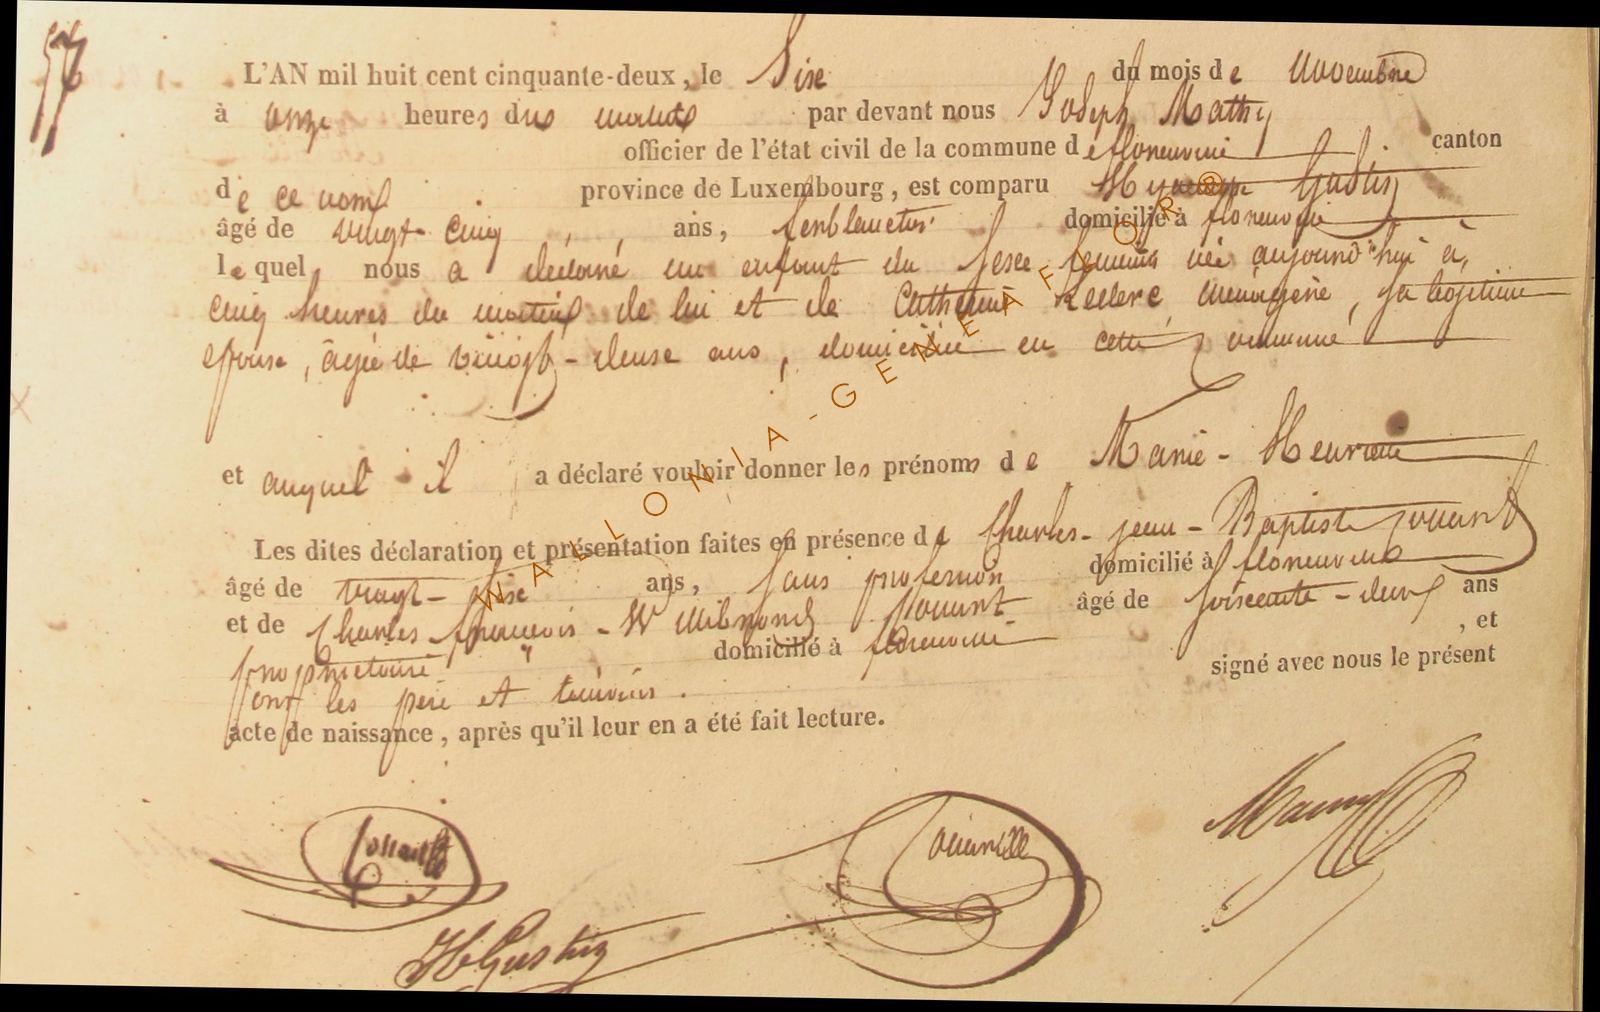 57
L'AN mil huit cent cinquante-deux, le Six du mois de Novembre
à onze heures du matin par devant nous Joseph Mathy
officier de l'état civil de la commune de florenville canton
de ce nom province de Luxembourg, est comparu Gustin
âgé de vingt-cinq ans, ferblantier domicilié à florenville
lequel nous a déclaré un enfant du sexe féminin né aujourd'hui à
cinq heures du matin de lui et de Catherine Leclerc, ménagère, sa légitime
épouse, âgée de vingt-deux ans, domiciliée en cette commune
et auquel il a déclaré vouloir donner les prénoms de Marie-Henriette
Les dites déclaration et présentation faites en présence de Charles-jean-Baptiste
âgé de vingt-six ans, sans profession domicilié à florenville
et de Charles-françois- âgé de soixante-deux ans
propriétaire domicilié à florenville , et
ont les père et témoins. signé avec nous le présent
acte de naissance, après qu'il leur en a été fait lecture.
H Gustin
WALLONIA-GENEAFLOR®